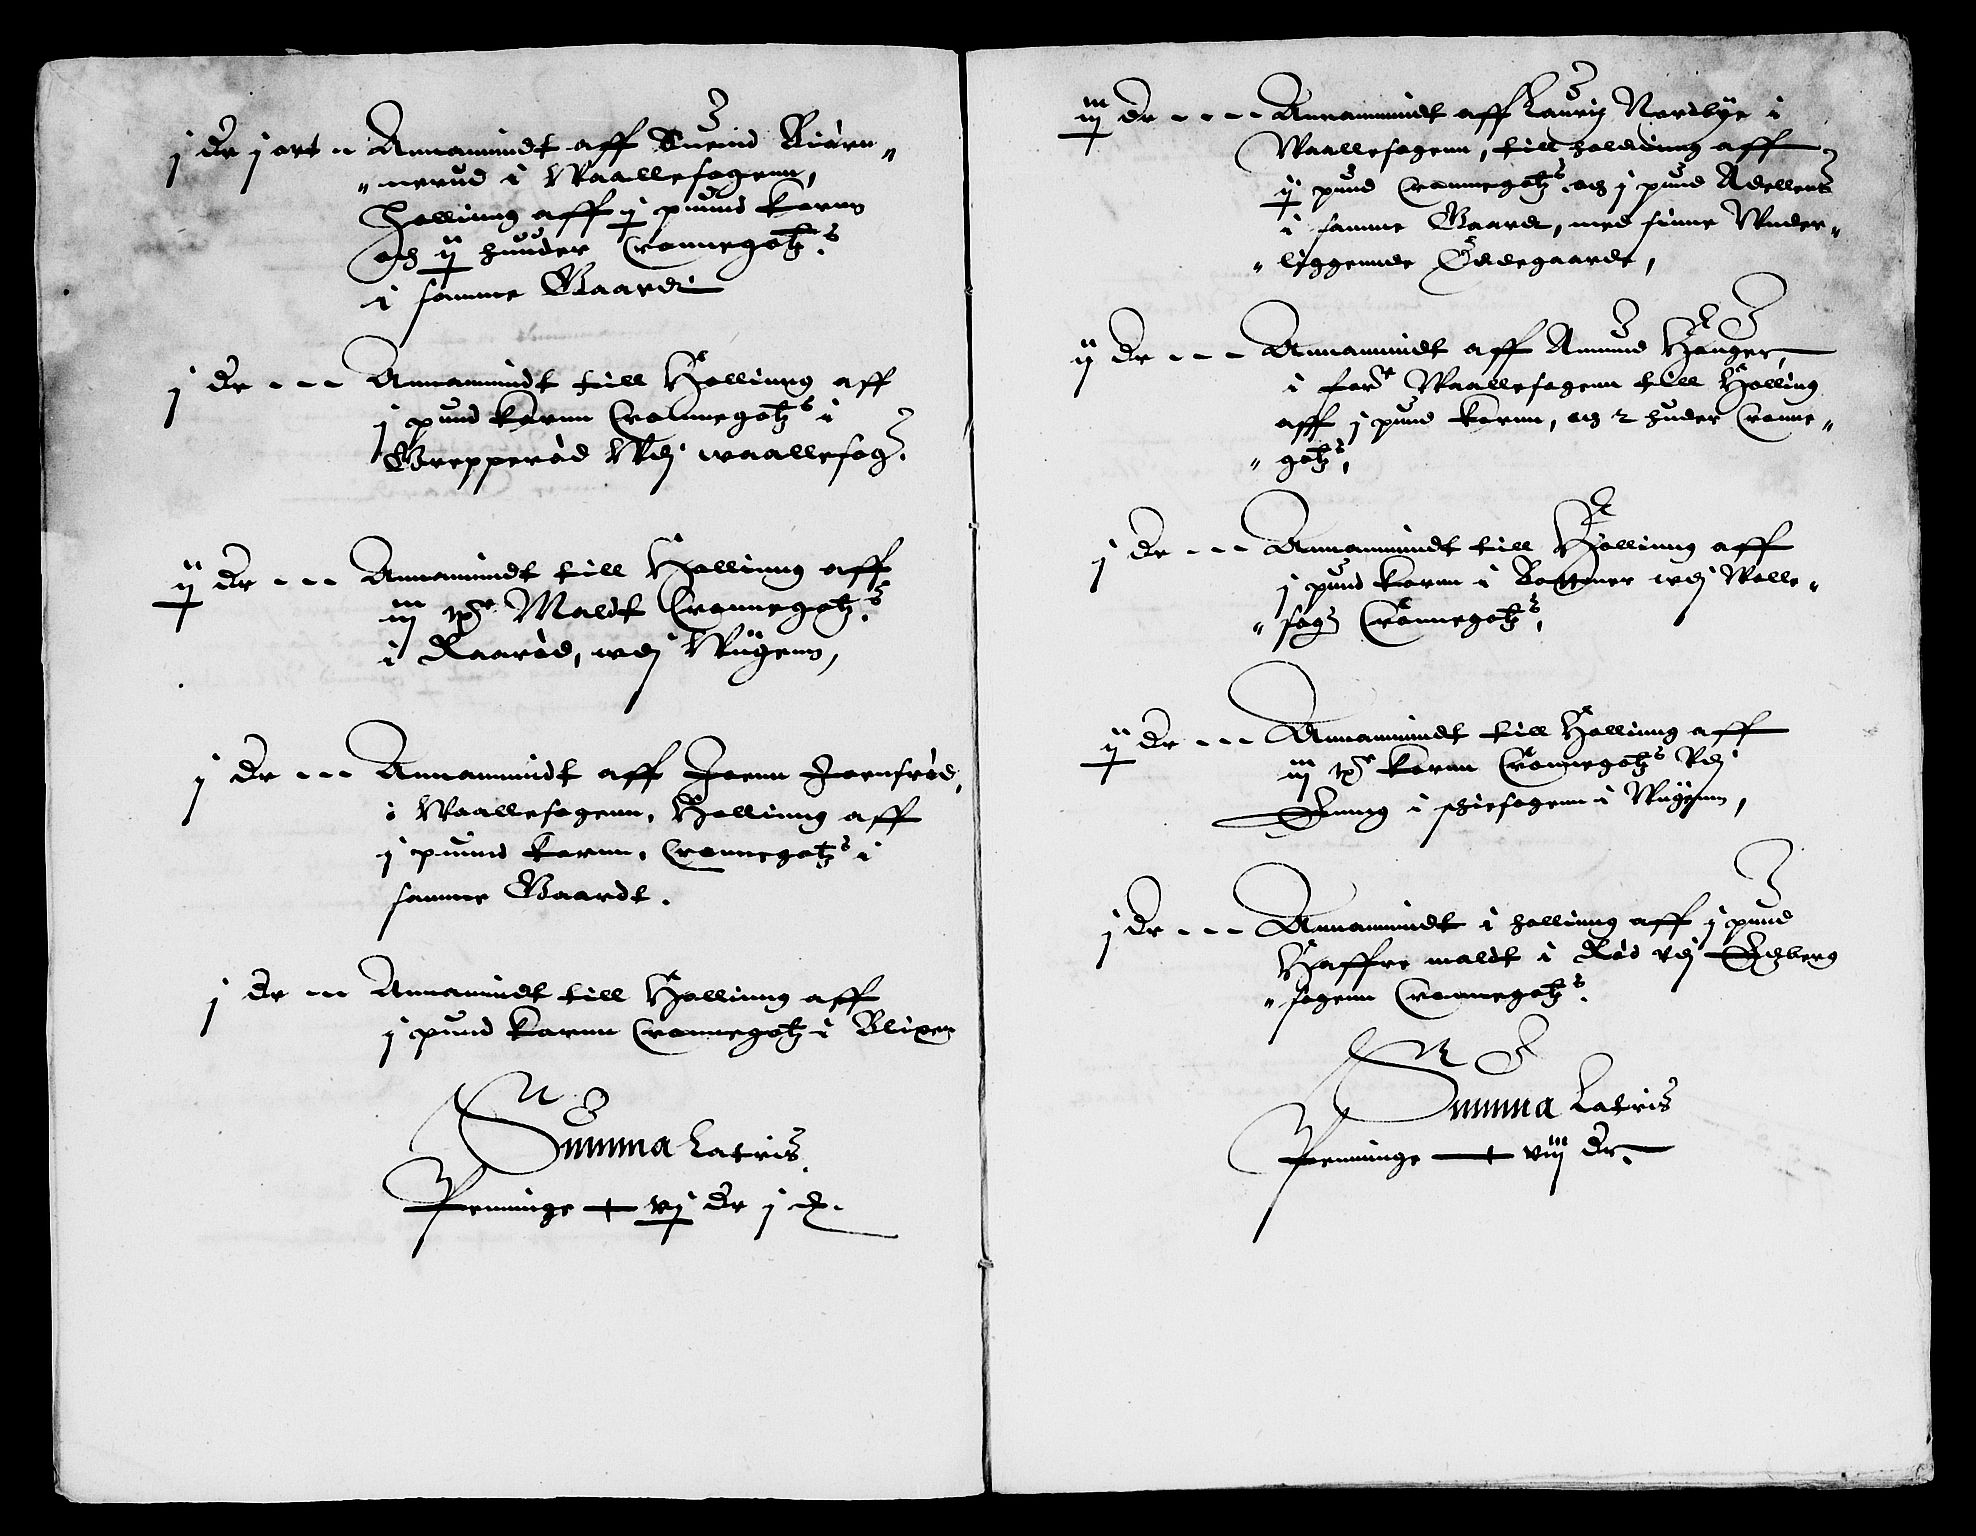 j dr j ort -- Annammidt aff Suend Biørn-
nerud i Waallesogenn,
Holliung aff j puund kornn
och ij huuder Cronnegotzs.
i samme Gaardt
j dr --- Annammidt till Holliung aff
j pund kornn Cronnegotzs i
Grepperød Wdj waallesog.
ij dr --- Annammidt till Holliung aff
iij Maldt Cronnegotzs.
i Raarød, wdj Wiigenn,
j dr --- Annammidt aff Joenn Joensrød,
i Waallesogenn, Holliung aff
j puund kornn, Cronnegotzs i
samme Gaardt.
j dr --- Annammidt till Holliung aff
j pund kornn Cronnegotz i Blixer
Summa Lateris
Penninge — vj dr j
iij dr ---- Annammidt aff Lauritz Nordbye i
Waallesogenn, till holdiung aff
ij pund Cronnegotzs. och j pund Adellens
i samme Gaardt, med sinne Wnder-
liggennde Ødegaarde,
ij dr --- Annammidt aff Amund Hanger,
i for Waallesogenn till Holling
aff j pund kornn, och 2 huder Cronne-
gotzs,
j dr --- Annammidt till Holliung aff
j pund kornn i Bottner wdj Walle-
sog Cronnegotzs,
ij dr --- Annammidt till Holliung aff
iij kornn Cronnegotzs Vdj
i schiesogenn i Wiigenn,
j dr --- Annammidt i holliung aff j pund
Haffre maldt i Rød vdj Edzberg
sogenn Cronnegotzs.
Summa Lateris
Penninge — viij dr.